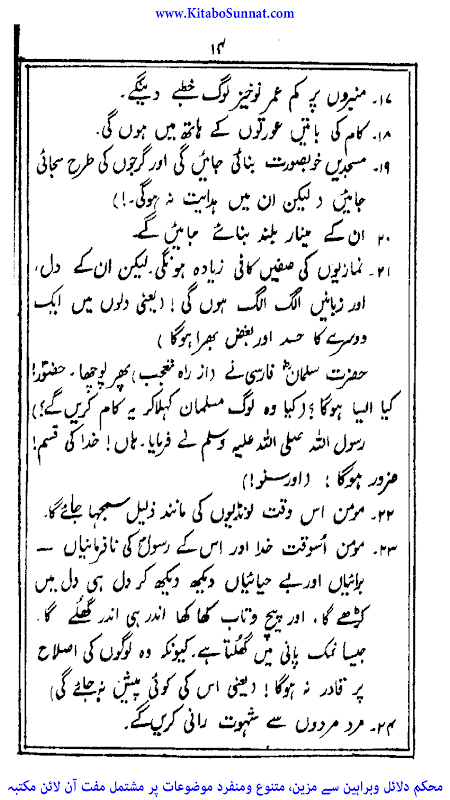 www.KitaboSunnat.com
۱۴
۱۷۔ منبروں پر کم عمر نوخیز لوگ خطبے دینگے۔
۱۸۔ کام کی باتیں عورتوں کے ہاتھ میں ہوں گی۔
۱۹۔ مسجدیں خوبصورت بنائی جائیں گی اور گرجوں کی طرح سجائی
جائیں (لیکن ان میں ہدایت نہ ہوگی۔!)
۲۰۔ ان کے مینار بلند بنائے جائیں گے۔
۲۱۔ نمازیوں کی صفیں کافی زیادہ ہونگی۔ لیکن ان کے دل،
اور زبانیں الگ الگ ہوں گی! (یعنی دلوں میں ایک
دوسرے کا حسد اور بغض بھرا ہوگا)
حضرت سلمانؓ فارسی نے (از راہ تعجب) پھر پوچھا۔ حضورؐ!
کیا ایسا ہوگا؟ (کیا وہ لوگ مسلمان کہلا کر یہ کام کریں گے؟)
رسول اللہ صلی اللہ علیہ وسلم نے فرمایا۔ ہاں! خدا کی قسم!
ضرور ہوگا! (اور سنو!)
۲۲۔ مومن اس وقت لونڈیوں کی مانند ذلیل سمجھا جائے گا۔
۲۳۔ مومن اسوقت خدا اور اس کے رسولؐ کی نافرمانیاں —
برائیاں اور بے حیائیاں دیکھ دیکھ کر دل ہی دل میں
کڑھے گا، اور پیچ و تاب کھا کھا اندر ہی اندر گھلے گا۔
جیسا نمک پانی میں گھلتا ہے۔ کیونکہ وہ لوگوں کی اصلاح
پر قادر نہ ہوگا! (یعنی اس کی کوئی پیش نہ جائے گی)
۲۴۔ مرد مردوں سے شہوت رانی کریں گے۔
محکم دلائل وبراہین سے مزین، متنوع ومنفرد موضوعات پر مشتمل مفت آن لائن مکتبہ